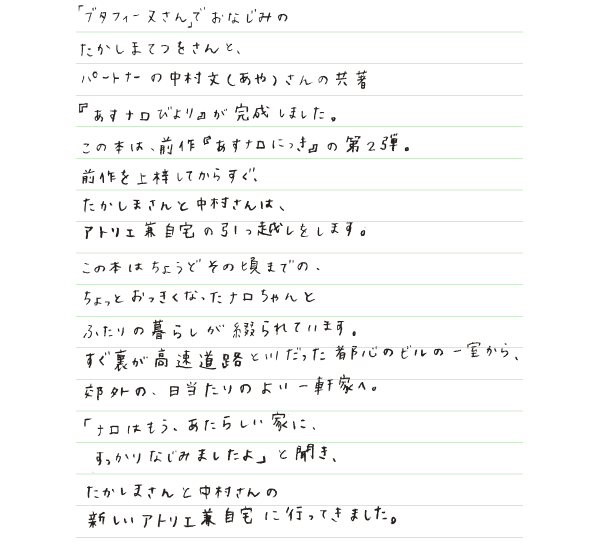 「ブタフィーヌさん」でおなじみの
たかしまてつをさんと、
パートナーの中村文(あや)さんの共著
『あすナロびより』が完成しました。
この本は、前作『あすナロにっき』の第2弾。
前作を上梓してからすぐ、
たかしまさんと中村さんは、
アトリエ兼自宅の引っ越しをします。
この本はちょうどその頃までの、
ちょっとおっきくなったナロちゃんと
ふたりの暮らしが綴られています。
すぐ裏が高速道路と川だった都心のビルの一室から、
郊外の、日当たりのよい一軒家へ。
「ナロはもう、あたらしい家に、
すっかりなじみましたよ」と聞き、
たかしまさんと中村さんの
新しいアトリエ兼自宅に行ってきました。